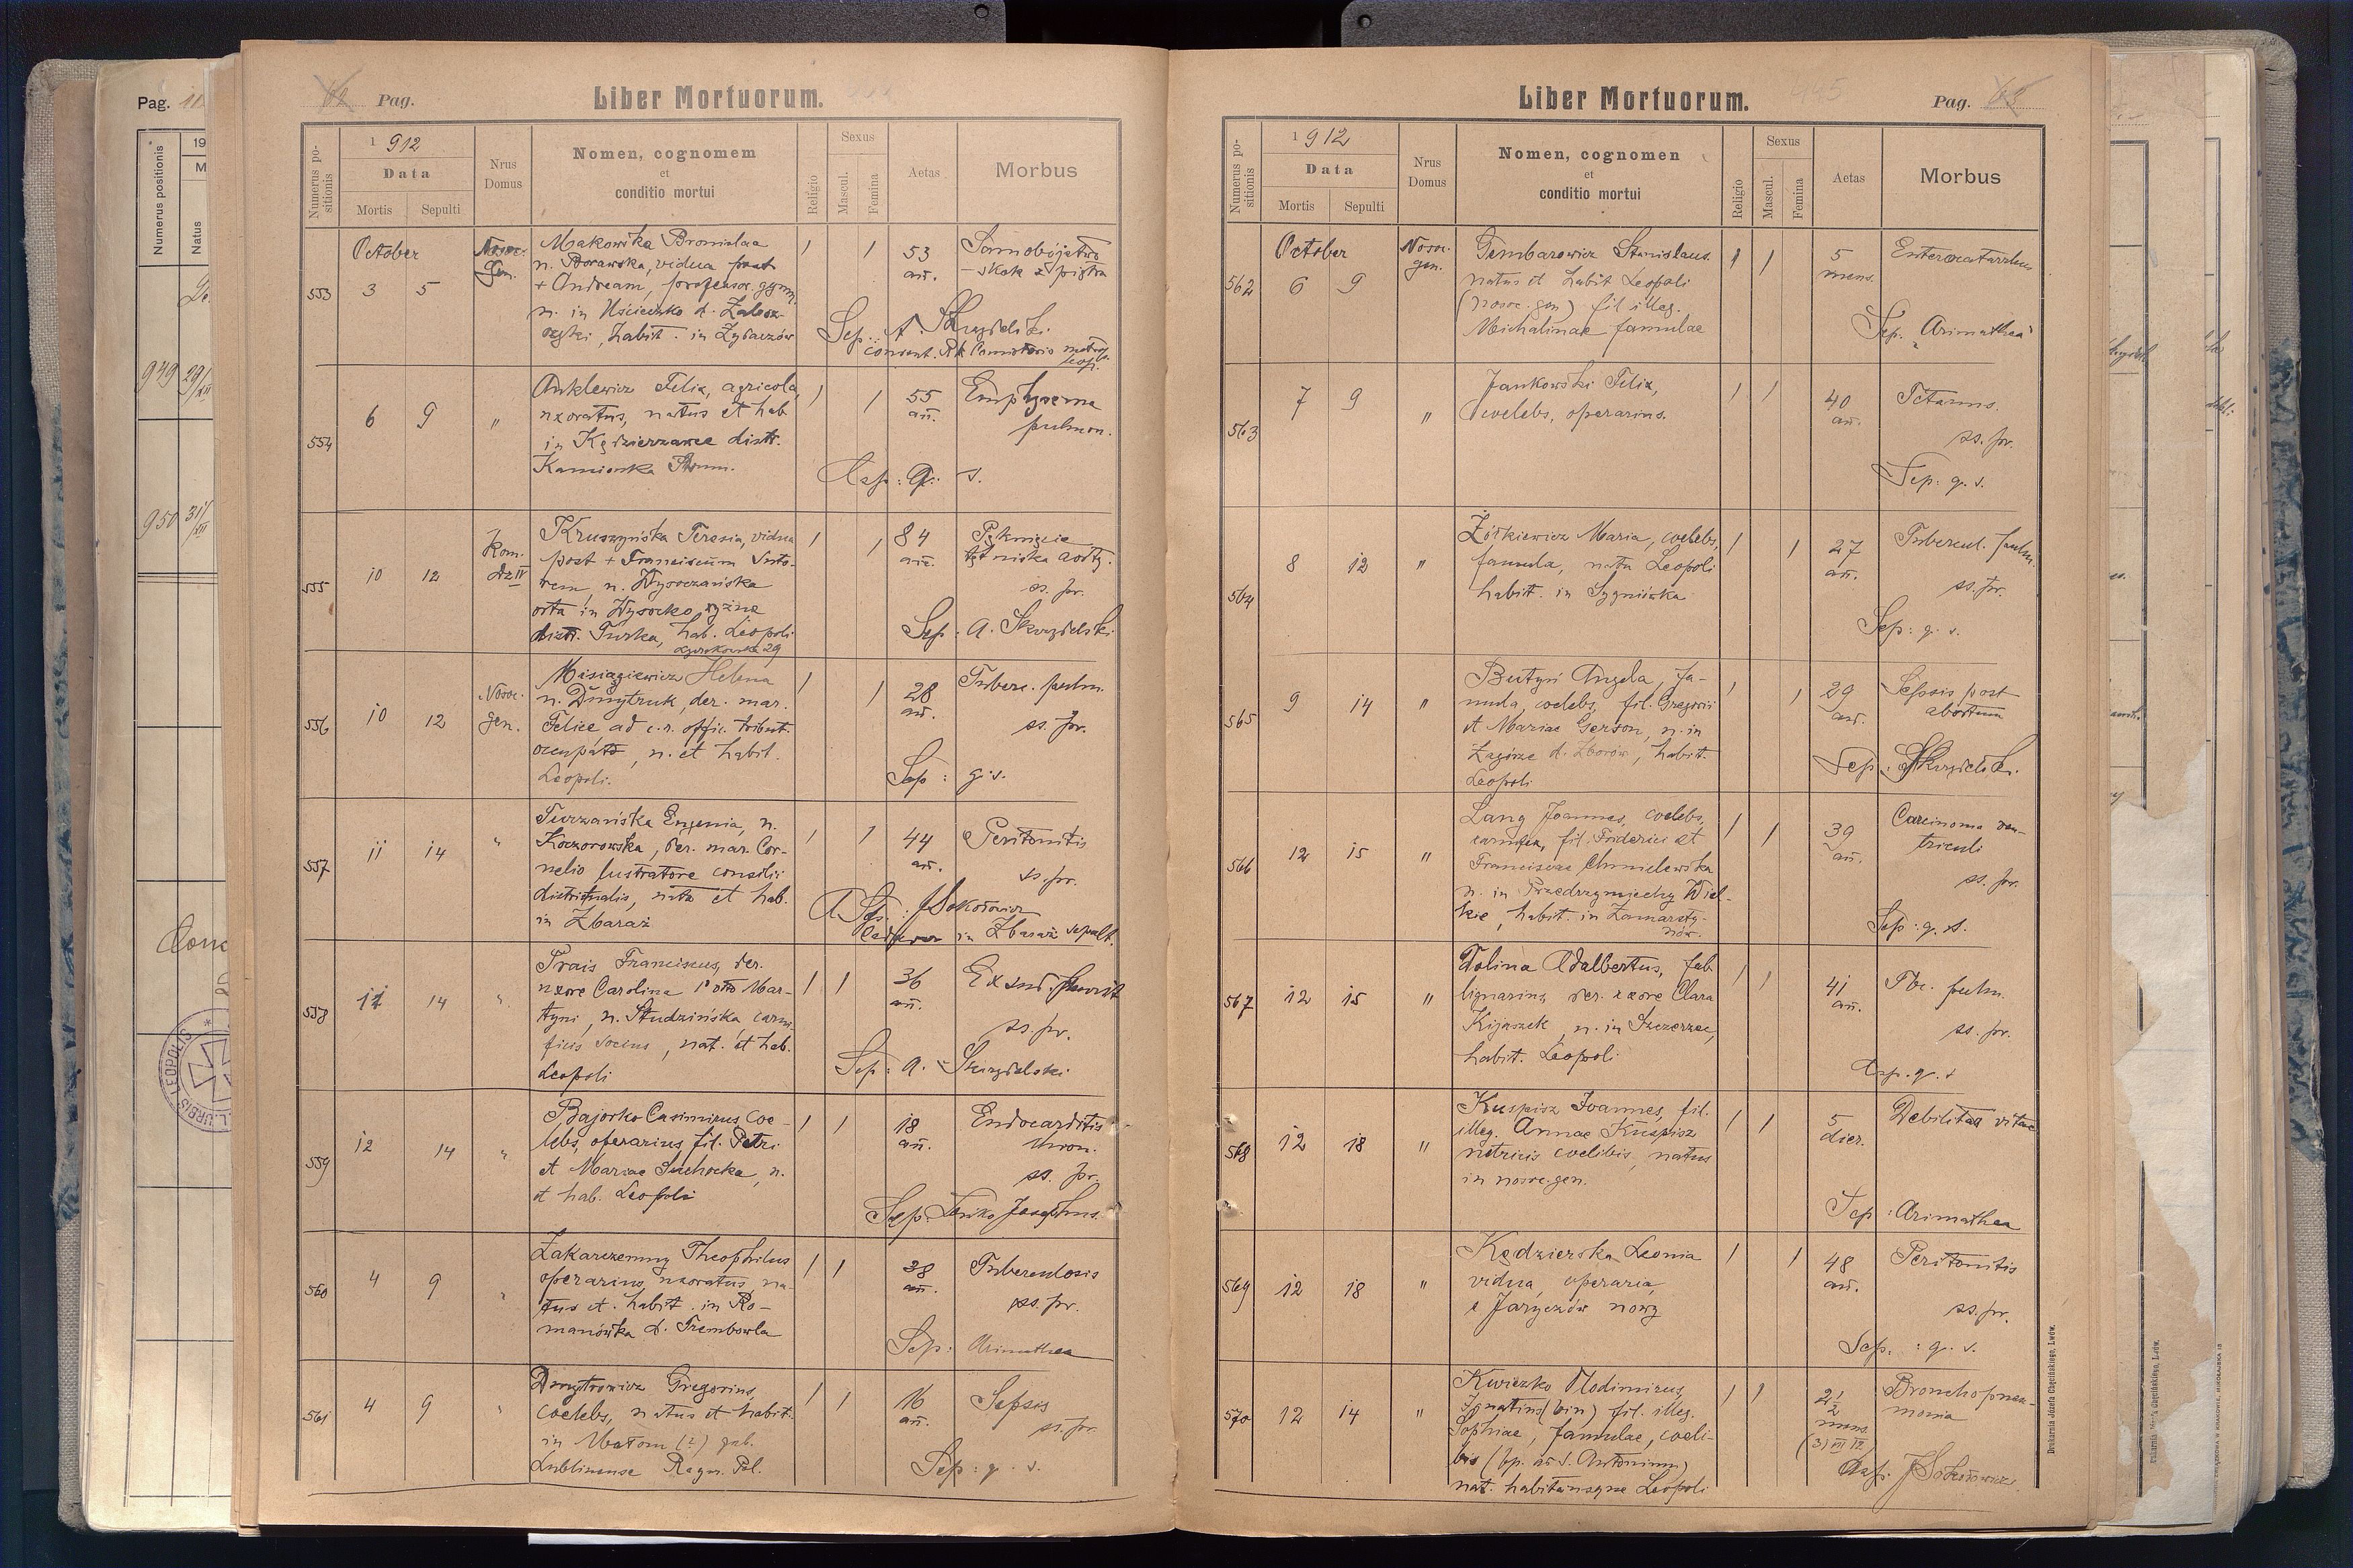 Pag.
Numerus positionis
Natus
949 29/XII
950 31/XII
62 Pag.
Liber Mortuorum.
Numerus positionis
1912
Data
Mortis
Sepulti
Nrus Domus
Nomen, cognomem
et
conditio mortui
Religio
Sexus
Mascul.
Femina
Aetas
Morbus
October
553
3 5
Nosoc. Gen.
Makowska Bronislaa
n. Borawska, vidua post
+ Andream, professor. gymn.
n. in Uścieczko d. Zalesz-
czyki, habit. in Żydaczów
1 1
53 an.
Samobójstwo
- skok z piętra
Sep.: A. Skrzydelski
consent. Rk Consistorio metrop. Leop.
554
6 9
"
Anklewicz Felix, agricola,
uxoratus, natus et hab
in Kędzierzawce distr.
Kamionka Strum.
1 1
55 an.
Emphysema
pulmon.
Asp: q. s.
555
10 12
Kom. dz IV
Kruszyńska Teresia, vidua
post + Franciscum Suto-
rem, n. Wysoczańska
orta in Wysocko wyżne
distr. Turka, hab. Leopoli
Łyczakowska 29
1 1
84 an.
Pęknięcie
tętniska aorty.
ss. pr.
Sep: A. Skrzydelski
556
10 12
Nosoc. gen.
Misiągiewicz Helena
n. Dmytruk, der. mar.
Felice ad c. r. offic. tribut.
occupato, n. et habit.
Leopoli.
1 1
28 an.
Tuberc. pulm.
ss. pr.
Sep: q. s.
557
11 14
"
Turzańska Eugenia, n.
Koczorowska, der. mar. Cor-
nelio lustratore consilii
districtualis, nata et hab.
in Zbaraż
1 1
44 an.
Peritonitis
ss. pr.
Asp.: J Sokołowicz
Cadaver in Zbaraż sepult.
558
11 14
"
Prais Franciscus, der.
uxore Carolina 1o voto Mar-
tyni, n. Studzińska carni-
ficis socius, nat. et hab.
Leopoli
1 1
36 an.
Exsud. pleurit
ss. pr.
Sep: A. Skrzydelski
559
12 14
"
Bajorko Casimirus, coe-
lebs, operarius, fil. Petri
et Mariae Suchocka, n.
et hab. Leopoli
1 1
18 an.
Endocarditis
chron.
ss. pr.
Sep: Josephus.
560
4 9
"
Zakarczemny Theophilus
operarius, uxoratus, na-
tus et. habit. in Ro-
manówka d. Trembowla
1 1
38 an.
Tuberculosis
ss. pr.
Sep: Arimathea
561
4 9
"
Dmytrowicz Gregorius,
coelebs, natus et habit.
in Matom (?) gub.
Lublinense Regn. Pol.
1 1
16 an.
Sepsis
ss. pr.
Sep: q. s.
Liber Mortuorum.
445
Pag. 63
Numerus positionis
1912
Data
Mortis
Sepulti
Nrus Domus
Nomen, cognomen
et
conditio mortui
Religio
Sexus
Mascul.
Femina
Aetas
Morbus
October
562
6 9
Nosoc. gen.
Gembarowicz Stanislaus
natus et habit Leopoli
(nosoc. gen) fil illeg.
Michalinae famulae
1 1
5 mens.
Enterocatarrhus
Sep. "Arimathea"
563
7 9
"
Jankowski Felix,
coelebs, operarius.
1 1
40 an.
Tetanus.
ss. pr.
Sep: q. s.
564
8 12
"
Żółkiewicz Maria, coelebs,
famula, nata Leopoli
habit. in Sygniówka
1 1
27 an.
Tubercul. pulm.
ss. pr.
Sep: q. s.
565
9 14
"
Butyń Angela, fa-
mula, coelebs, fil. Gregorii
et Mariae Gerson, n. in
Zagórze d. Zborów, habit.
Leopoli
1 1
29 an.
Sepsis post
abortum
Sep: A Skrzydelski.
566
12 15
"
Lang Joannes, coelebs,
carnifex, fil. Friderici et
Franciscae Chmielewska
n. in Przedrzymiechy Wiel-
kie, habit. in Zamarsty-
nów.
1 1
39 an.
Carcinoma ven-
triculi
ss. pr.
Sep: q. s.
567
12 15
"
Dolina Adalbertus, fab.
lignarius, der. uxore Clara
Kijaszek, n. in Szczerzec,
habit. Leopoli
1 1
41 an.
Tbc. pulm.
ss. pr.
Asp. q. s
568
12 18
"
Kuspisz Joannes, fil.
illeg. Annae Kuspisz
nutricis coelibis, natus
in nosoc. gen.
1 1
5 dier.
Debilitas vitae
Sep: Arimathea
569
12 18
"
Kędzierska Leonia
vidua, operaria,
e Jaryczów nowy
1 1
48 an.
Peritonitis
ss. pr.
Sep.: q. s.
570
12 14
"
Kwiczko Vlodimirus,
Ignatius (bin) fil. illeg.
Sophiae, famulae, coeli-
bis (bp. ad S. Antonium)
nat. habitansque Leopoli
1 1
2 1/2 mens.
(31 VII 12)
Bronchopneu-
monia
Asp. J Sokołowicz
Drukarnia Józefa Chęcińskiego, Lwów.